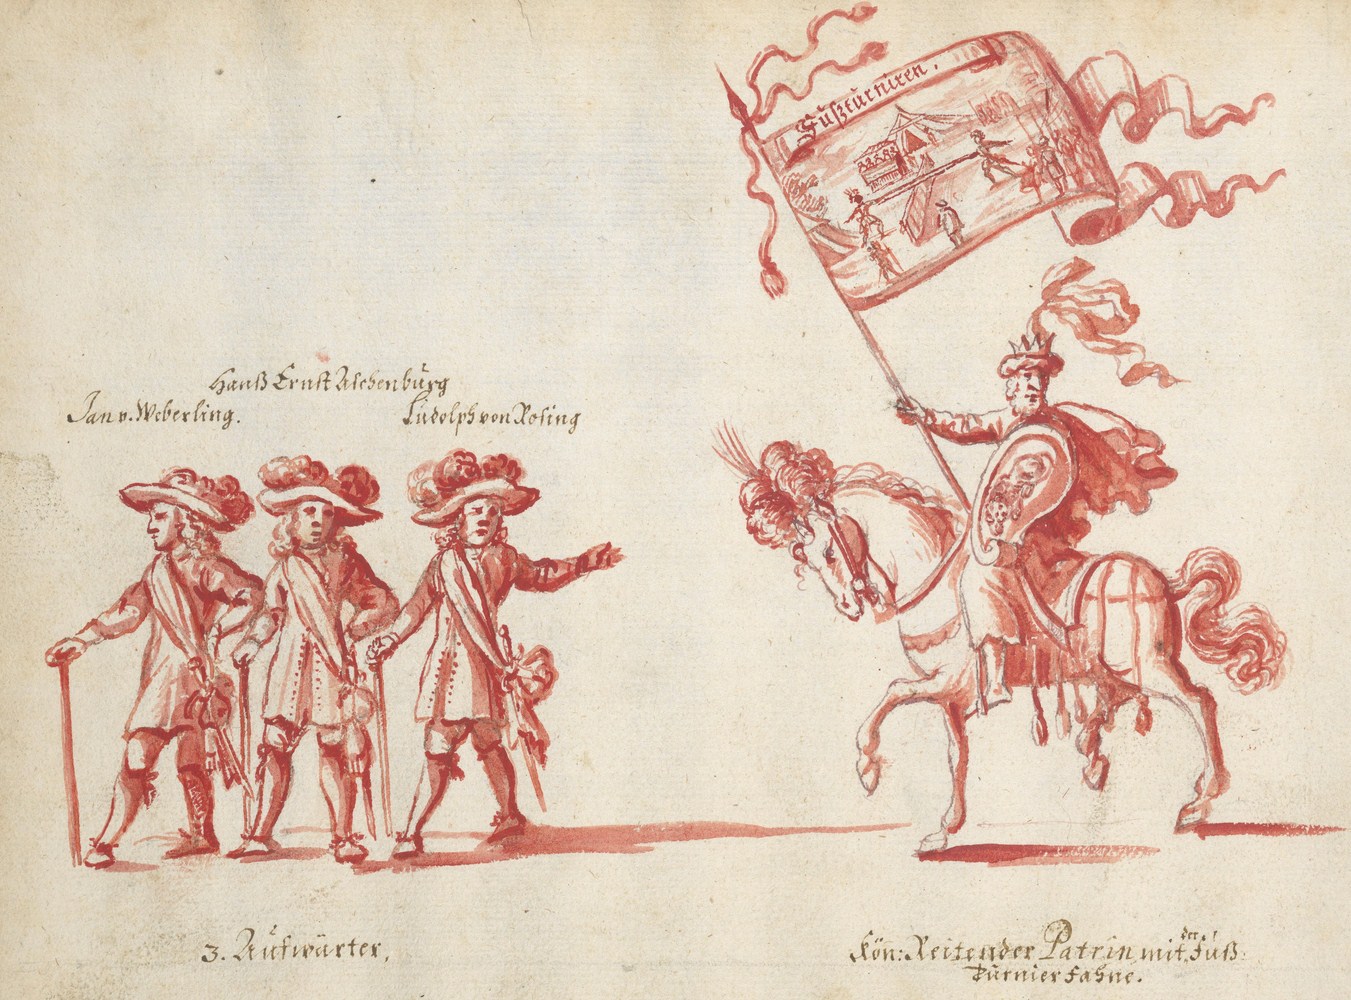 Fußturniren.
Hanß Ernst Aschenburg
Jan v. Weberling.
Ludolph von Rosing
3. Aufwärter.
Kön: Reitender Patrin mit der Fuß:
Turnier fahne.